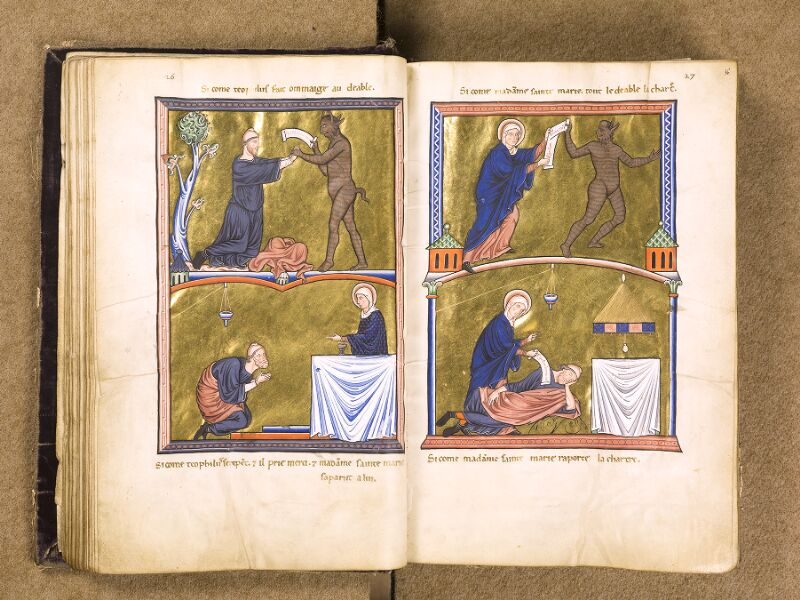 26
Si come teophilus fait ommaige au deable.
Si come teophilus se repent. ⁊ il prie merci. ⁊ madame sainte marie
saparut a lui.
27
Si come madame sainte marie. tout le deable la chartre.
Si come madame sainte marie raporte la chartre.